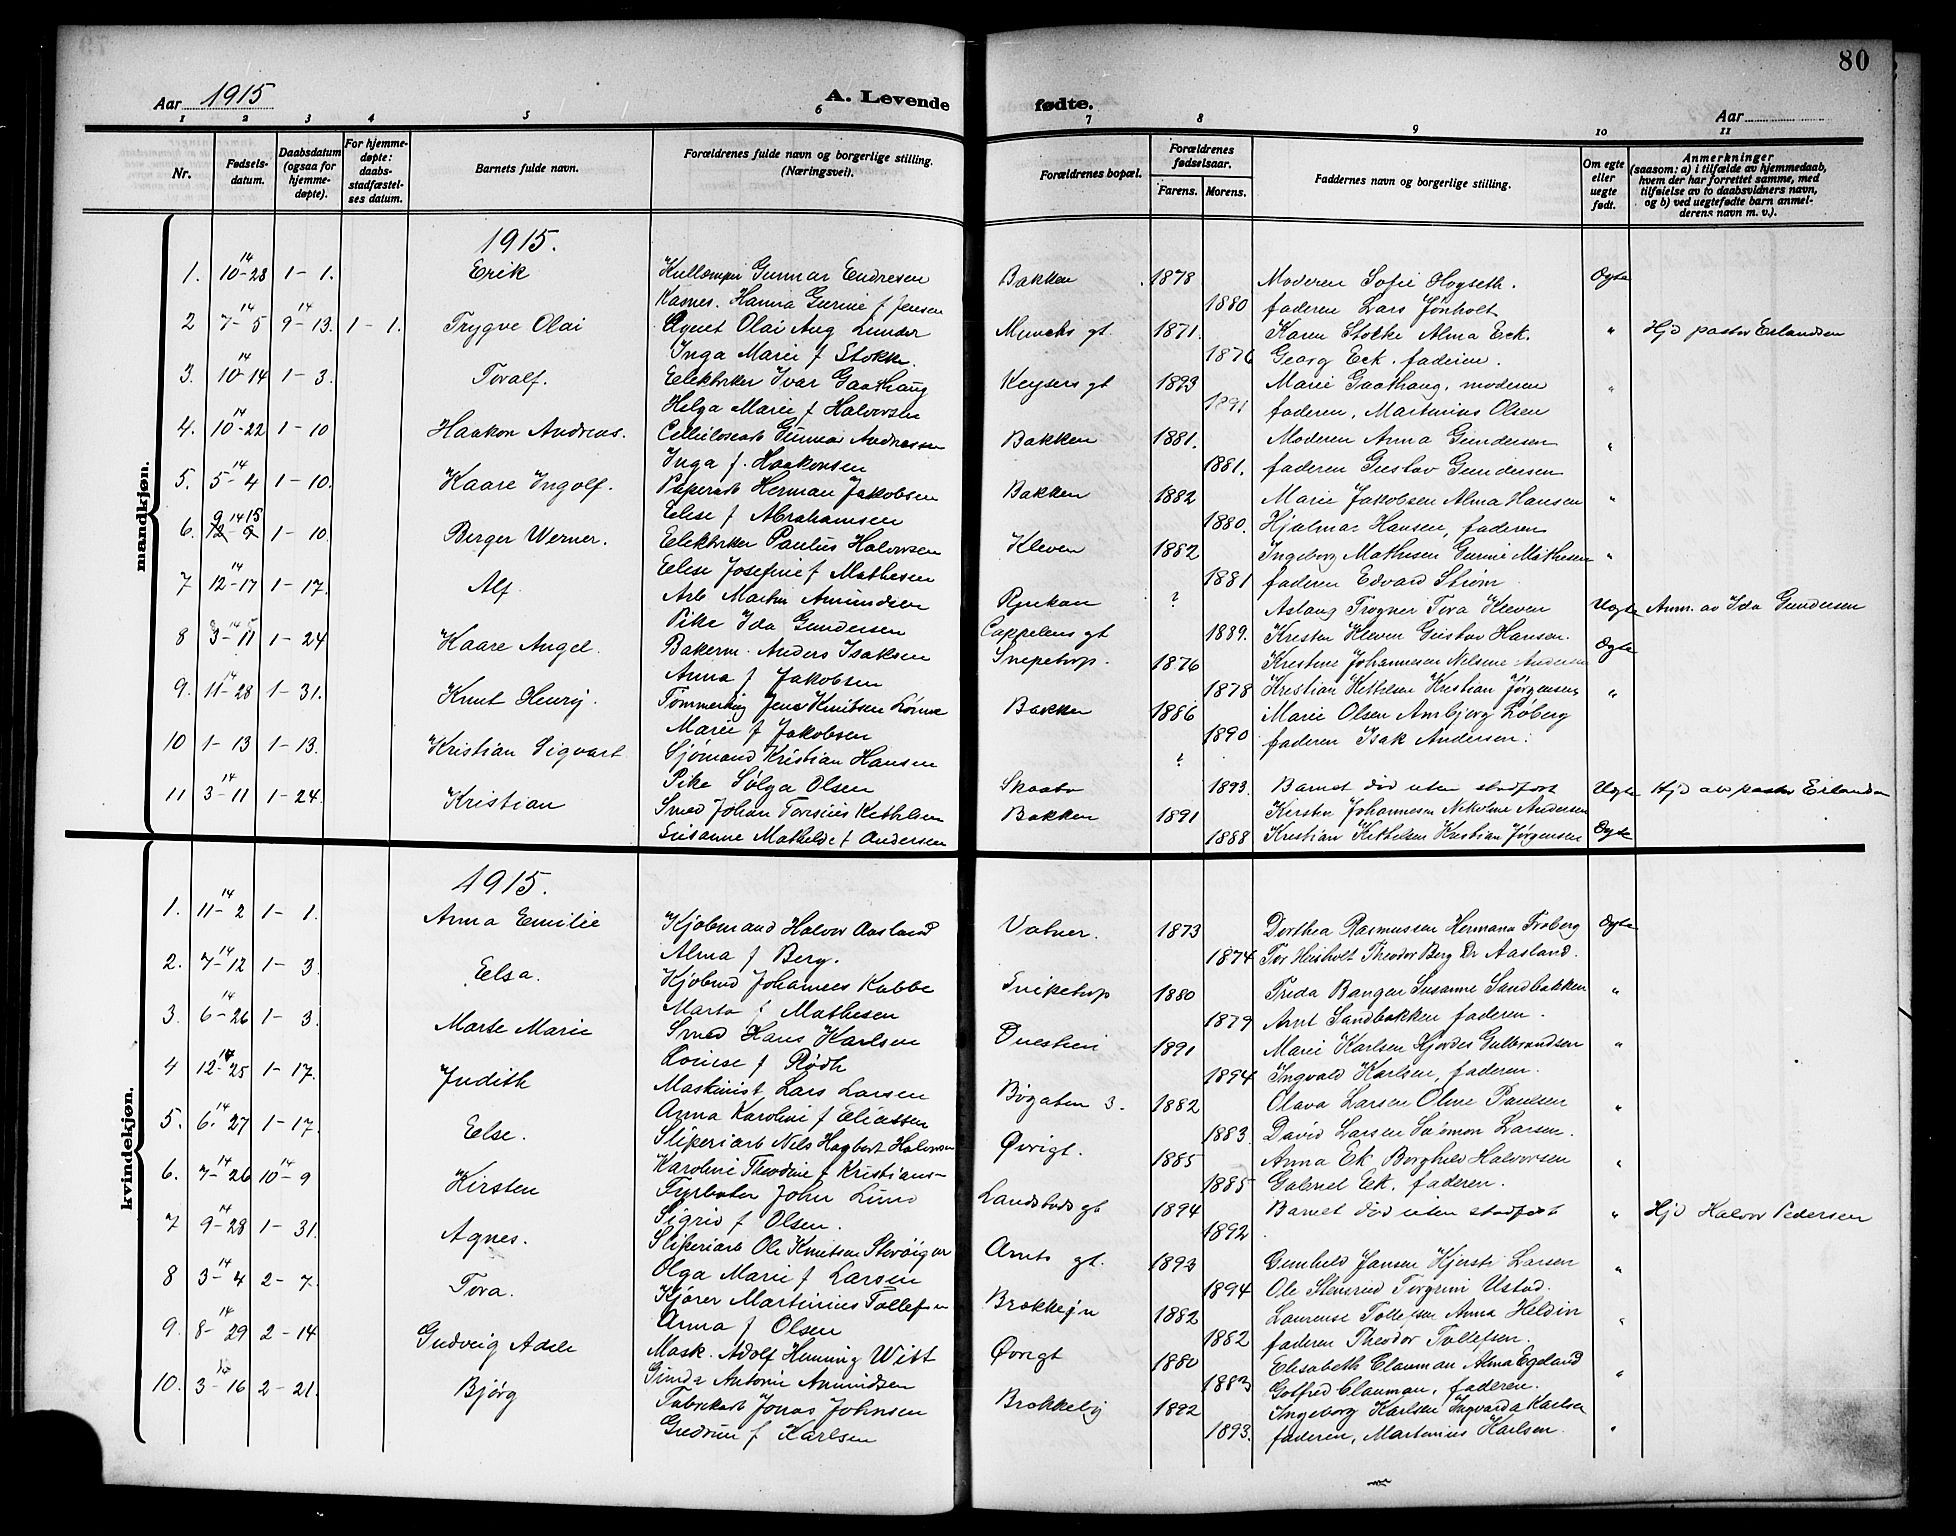 80
Aar 1915
A. Levende
fødte.
Aar
1 2 3 4 5 6 7 8 9 10 11
Nr.
Fødsels-
datum.
Daabsdatum
(ogsaa for
hjemme-
døpte).
For hjemme-
døpte:
daabs-
stadfæstel-
ses datum.
Barnets fulde navn.
Forældrenes fulde navn og borgerlige stilling.
(Næringsvei).
Forældrenes bopæl.
Forældrenes
fødselsaar.
Farens. Morens.
Faddernes navn og borgerlige stilling.
Om egte
eller
uegte
født.
Anmerkninger
(saasom: a) i tilfælde av hjemmedaab,
hvem der har forrettet samme, med
tilføielse av to daabsvidners navn,
og b) ved uegtefødte barn anmel-
derens navn m. v.).
mandkjøn.
1915.
1. 10-28 14 1-1. Erik Gunnar Endresen Bakken 1878 Moderen Sofie Hogseth. Ogte
Hanna Gurine f Jensen 1880 faderen Lars Jønholt
2 7-5 14 9-13. 14 1-1. Trygve Olai Agent Olai Aug Lunder Muncks gt. 1871. Karen Stokke Alma Eek. " Hjd pastor Erlandsen
Inga Marie f Stokke. 1876 Georg Eek. faderen.
3. 10-14 14 1-3. Toralf. Elektriker Ivar Gaathaug Keysers gt 1893 Marie Gaathaug, moderen "
Helga Marie f Halvorsen 1891 faderen, Martinius Olsen
4. 10-22 14 1-10 Haakon Andreas. Cellulosearb Gunnar Andreassen Bakken 1881. Moderen Anna Gundersen "
Inga f. Haakonsen 1881. faderen Gustav Gundersen
5. 5-4 14 1-10. Kaare Ingolf. Papirarb Herman Jakobsen Bakken 1882 Marie Jakobsen Alma Hansen "
Elise f Abrahamsen 1880. Hjalmar Hansen, faderen
6. 1-10. Berger Werner. Elektriker Paulus Halvorsen Kleven 1882 Ingeborg Mathisen Gurine Mathesen "
Elise Josefine f Mathesen 1881 faderen Edvard Strøm
7 12-17 14 1-17. Alf. Arb Martin Amundsen Rjukan ? Aslaug Trogner Tora Kleven Uegte Anm. av Ida Gundersen
Pike Ida Gundersen Cappelens gt 1889. Kristen Kleven Gustav Hansen.
8 3-11 14 1-24 Kaare Angel. Bakerm. Anders Isaksen Snipetorp. 1876 Kristine Johannesen Nilsine Andersen Ogte
Anna f Jakobsen 1878 Kristian Kethelsen Kristian Jørgensen
9. 11-28 14 1-31. Knut Henry. Jens Knutsen Bakken 1886 Marie Olsen Ambjorg Løberg "
Marie f Jakobsen 1890 faderen Isak Andersen.
10 1-13 1-13. Kristian Sigvart Sjømand Kristian Hansen ?
Pike Solga Olsen Skaatø 1893. Barnet død uten stadfæst Uegte Hjd av pastor Erlandsen
11 3-11 14 1-24. Kristian Smed Johan Kethelsen Bakken 1891 Kirsten Johannesen Nikoline Andersen
Susanne Mathilde f Andersen 1888 Kristian Kethelsen Kristian Jørgensen Ogte
kvindekjøn.
1915.
1. 11-2 14 1-1. Anna Emilie Kjøbmand Halvor Aasland Vatner. 1873 Dorthea Rasmussen Hermana Froberg Ogte
Alma f Berg. 1874 Theodor Berg Dr Aasland.
2. 7-12 14 1-3. Elsa. Kjøbmd Johannes Kabbe Snipetorp 1880 Frida Bangen Susanne Sandbakken "
Marta f Mathesen 1879 Arnt Sandbakken faderen.
3. 6-26 14 1-3. Marte Marie Smed Hans Karlsen Duestien 1891 Marie Karlsen Hjørdes Gulbrandsen "
Louise f Rødh 1894 Ingvald Karlsen, faderen.
4 12-25 14 1-17. Judith Maskinist Lars Larsen Bøgaten 3. 1882 Olava Larsen Oline Paulsen "
Anna Karoline f Eliassen 1883. David Larsen Salomon Larsen.
5. 6-27 14 1-17. Else. Sliperiarb Nils Hagbert Halvorsen Øvrigt. 1885 Anna Ek Borghild Halvorsen "
Karoline Theodine f Kristians- 1885 Gabriel Eek. faderen.
6. 7-26 14 10-9 14 Kirsten Fyrbøter John Lund Landstads gt 1894 Barnet død uten stadfæst " Hjd Halvor Pedersen
Sigrid f Olsen. 1892.
7 9-28 14 1-31. Agnes. Sliperiarb Ole Knutsen Amts gt. 1893 Gunhild Jansen Kjersti Larsen "
Olga Marie f Larsen 1894 Ole Stensrud Torgrim Ustad.
8 3-4 14 2-7. Tora. Kjører Martinius Tollefsen 1882 Laurense Tollefsen Anna Heldin "
Anna f Olsen 1882 faderen Theodor Tollefsen.
9. 8-29 14 2-14 Gudveig Adele Mask. Adolf Henning Witt Øvrigt 1880 Elisabeth Clauman Alma Egeland "
Ginda Antonie Amundsen 1883 Gotfred Clauman, faderen.
10. 3-16 2-21. Bjørg Fabrikarb Jonas Johnsen 1892 Ingeborg Karlsen Ingvarda Karlsen
Gudrun f Karlsen 1893. faderen, Martinius Karlsen. "